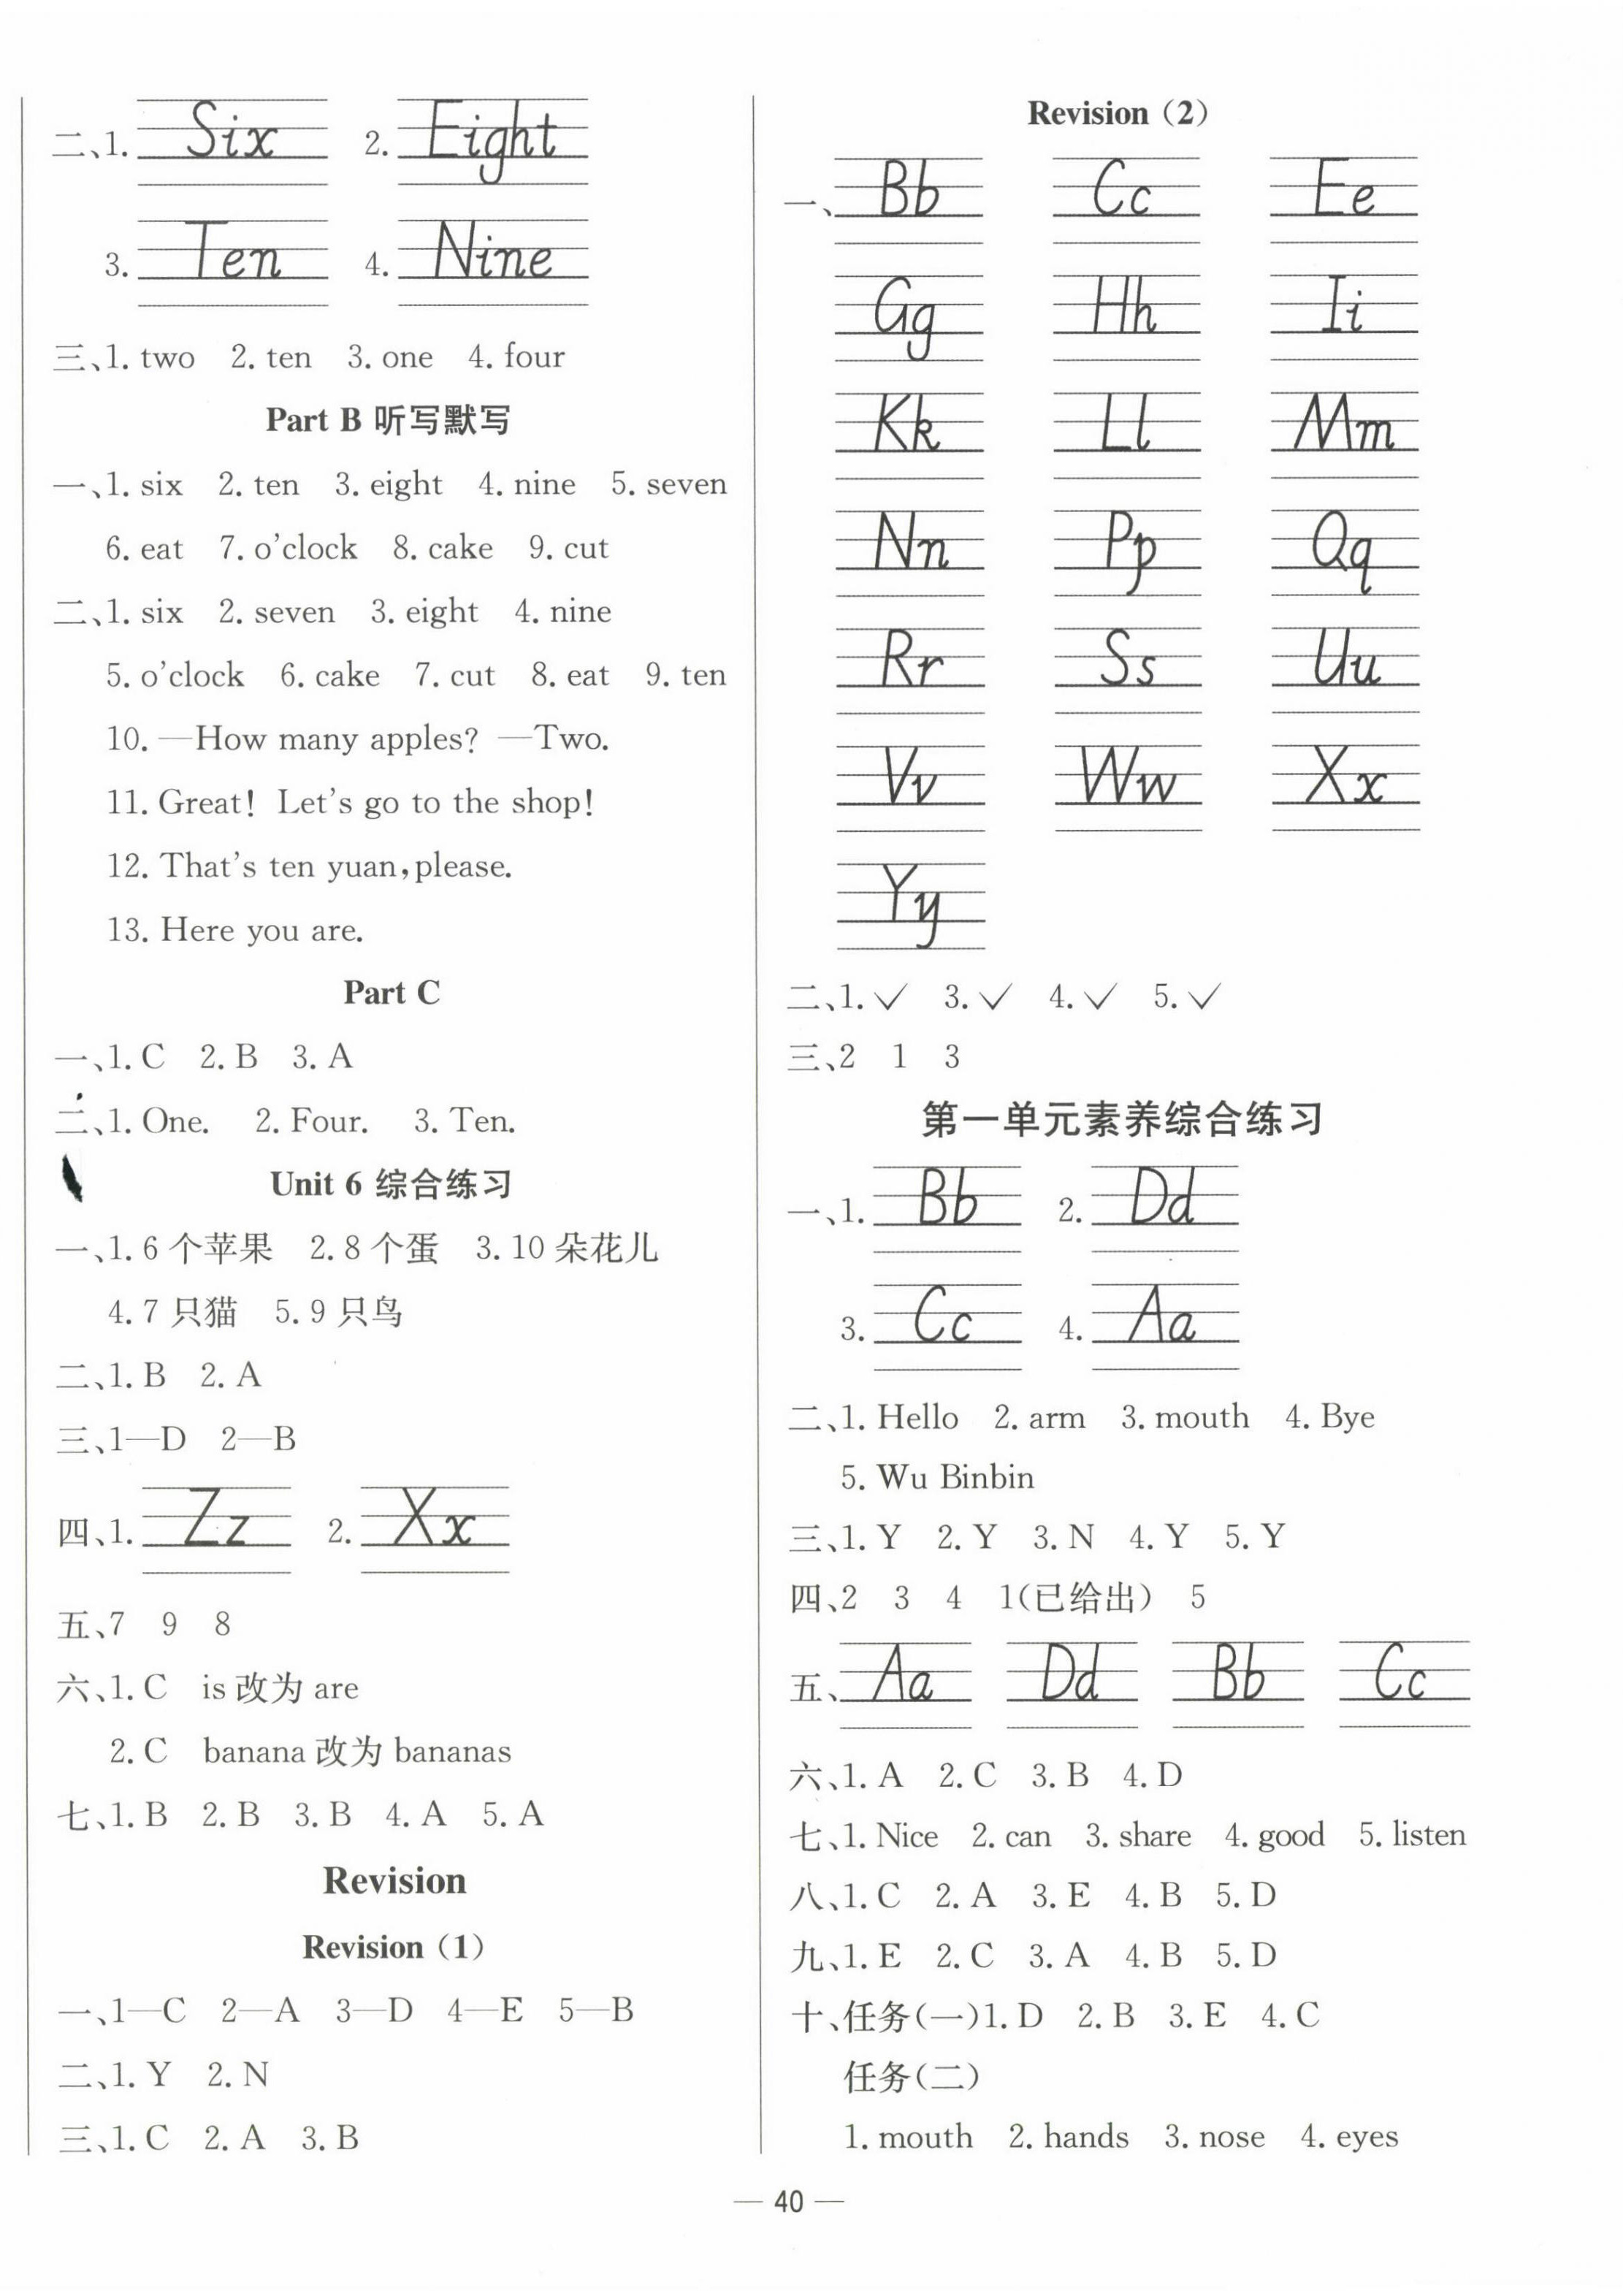 二、1. Six 2. Eight
3. Ten 4. Nine
三、1. two 2. ten 3. one 4. four
Part B 听写默写
一、1. six 2. ten 3. eight 4. nine 5. seven
6. eat 7. o'clock 8. cake 9. cut
二、1. six 2. seven 3. eight 4. nine
5. o'clock 6. cake 7. cut 8. eat 9. ten
10. —How many apples? —Two.
11. Great! Let's go to the shop!
12. That's ten yuan, please.
13. Here you are.
Part C
一、1. C 2. B 3. A
二、1. One. 2. Four. 3. Ten.
Unit 6 综合练习
一、1. 6个苹果 2. 8个蛋 3. 10朵花儿
4. 7只猫 5. 9只鸟
二、1. B 2. A
三、1—D 2—B
四、1. Zz 2. Xx
五、7 9 8
六、1. C is改为are
2. C banana改为bananas
七、1. B 2. B 3. B 4. A 5. A
Revision
Revision（1）
一、1—C 2—A 3—D 4—E 5—B
二、1. Y 2. N
三、1. C 2. A 3. B
Revision（2）
一、Bb Cc Ee
Gg Hh Ii
Kk Ll Mm
Nn Pp Qq
Rr Ss Uu
Vv Ww Xx
Yy
二、1. ✓ 3. ✓ 4. ✓ 5. ✓
三、2 1 3
第一单元素养综合练习
一、1. Bb 2. Dd
3. Cc 4. Aa
二、1. Hello 2. arm 3. mouth 4. Bye
5. Wu Binbin
三、1. Y 2. Y 3. N 4. Y 5. Y
四、2 3 4 1(已给出) 5
五、Aa Dd Bb Cc
六、1. A 2. C 3. B 4. D
七、1. Nice 2. can 3. share 4. good 5. listen
八、1. C 2. A 3. E 4. B 5. D
九、1. E 2. C 3. A 4. B 5. D
十、任务(一)1. D 2. B 3. E 4. C
任务(二)
1. mouth 2. hands 3. nose 4. eyes
— 40 —